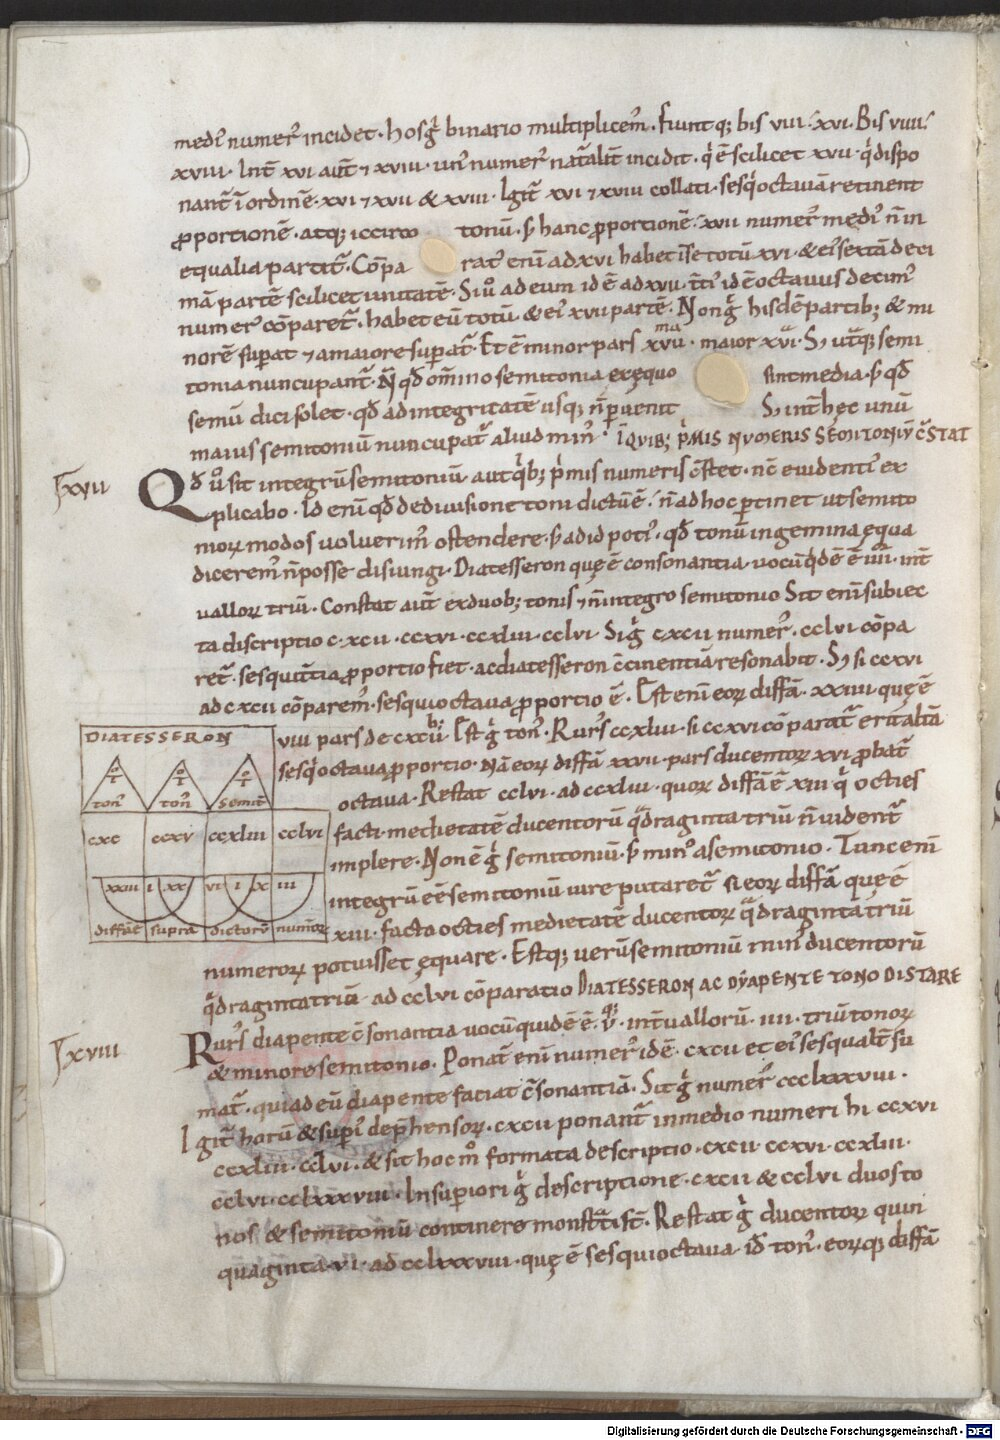 medi' numer' incidet · hosg' binario multiplicem' · Fiunt q; bis viii · xvi · Bis viiii ·
xviii · Int' xvi aut' ⁊ xviii · un' numer' nat'alit' incidit · q' ē scilicet xvii · q' dispo
nant' ī ordinē · xvi ⁊ xvii & xviii · Igit' xvi ⁊ xviii collati · sesq'octavā retinent
p̄portionē · atq; iccirco tonū · s; hanc p̄portionē · xvii numer' medi' n̄ in
equalia partit' · Cōpa rat' enī ad xvi habet ī se totū xvi · & ei' sextā deci
mā partē scilicet unitatē · Si v° ad eum id ē ad xvii · t'ti' id ē octavus decim'
numer' cōparet' · habet eū totū · & ei' xvii partē · Non g' hisdē partib; & mi
norē sup̄at ⁊ a maiore sup̄at' · Et ē minor pars xvii ma · maior xvi · S; ut'q; semi
tonia nuncupant' · N̄ qd̄ om̄ino semitonia ex ęquo sint media · s; qd̄
semū dici solet · qd̄ ad integritatē usq; n̄ p̄venit S; int' hęc unū
maius semitoniū nuncupat' aliud min' · ĪQUIB; P'MIS NUMERIS SEMITONIŪ C̄STAT
xvii
Qd̄ v° sit integrū semitoniū · aut q'b; p'mis numeris c̄stet · nc̄ evidenti' ex
plicabo · Id enī qd̄ de divisione toni dictū ē · n̄ ad hoc p̄tinet ut semito
nioꝝ modos voluerim' ostendere · s; ad id poti' · qd̄ tonū in gemina ęqua
dicerem' n̄ posse disiungi · Diatesseron quę ē consonantia · vocū q'dē ē iiii · int'
valloꝝ triū · Constat aut' ex duob; tonis ⁊ n̄ integro semitonio Sit enī subiec
ta discriptio c · xcii · ccxvi · ccxliii · cclvi Si g' cxcii numer' · cclvi cōpa
ret' · sesquit'tia p̄portio fiet · ac diatesseron c̄cinentiā resonabit · S; si ccxvi
ad cxcii cōparem' · sesquioctava p̄portio ē · Est enī eoꝝ diffā · xxiiii · quę ē
viii pars de cxcii b; Est g' ton' · Rurs' ccxliii · si ccxvi cōparat' erit alia
sesq'octava p̄portio · Nā eoꝝ diffā xxvii · pars ducentoꝝ xvi p̄bat'
octava · Restat cclvi · ad ccxliii · quoꝝ diffā ē xiii q' octies
facti · medietatē ducentorū q'draginta triū n̄ vident'
implere · Non ē g' semitoniū · s; min' a semitonio · Tunc enī
integrū eē semitoniū iure putaret' si eoꝝ diffā quę ē
xiii · facta octies medietatē ducentoꝝ q'draginta triū
numeroꝝ potuisset ęquare · Estq; verū semitoniū min' ducentorū
q'draginta triū ad cclvi cōparatio DIATESSERON AC DYAPENTE TONO DISTARE
DIATESSERON
ton' ton' semit'
cxc ccxv ccxliii cclvi
xxiii i xx vi i x iii
diffāt supra dictorū numeroꝝ
xviii
Rurs' diapente c̄sonantia vocū quidē ē · v · int'vallorū · iiii · triū tonoꝝ
& minore semitonio · Ponat' enī numer' idē · cxcii et ei' sesqualt' su
mat' · qui ad eū diapente faciat c̄sonantiā · Sit g' numer' cclxxxviii ·
Igit' horū & sup̄i' dep̄hensoꝝ · cxcii ponant' in medio numeri hi ccxvi
ccxliii · cclvi · & sit hoc m° formata descriptio · cxcii · ccxvi · ccxliii ·
cclvi · cclxxxviii · In sup̄iori g' descriptione · cxcii & cclvi duos to
nos & semitoniū continere monst'ati s̄t · Restat g' ducentoꝝ quin
quaginta · vi · ad cclxxxviii · quę ē sesquioctava id̄ ton' · eoꝝq; diffā
Digitalisierung gefördert durch die Deutsche Forschungsgemeinschaft - DFG